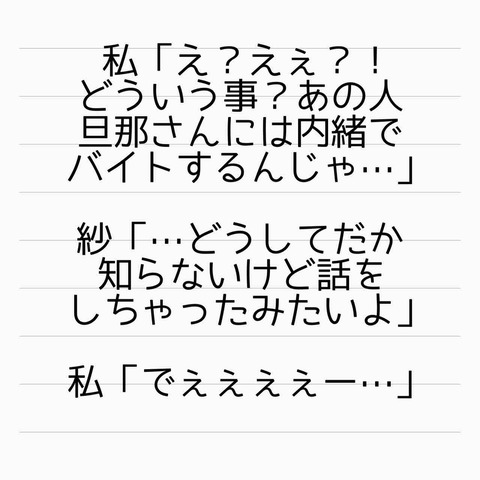 私「え？えぇ？！
どういう事？あの人
旦那さんには内緒で
バイトするんじゃ…」
紗「…どうしてだか
知らないけど話を
しちゃったみたいよ」
私「でぇぇぇぇー…」